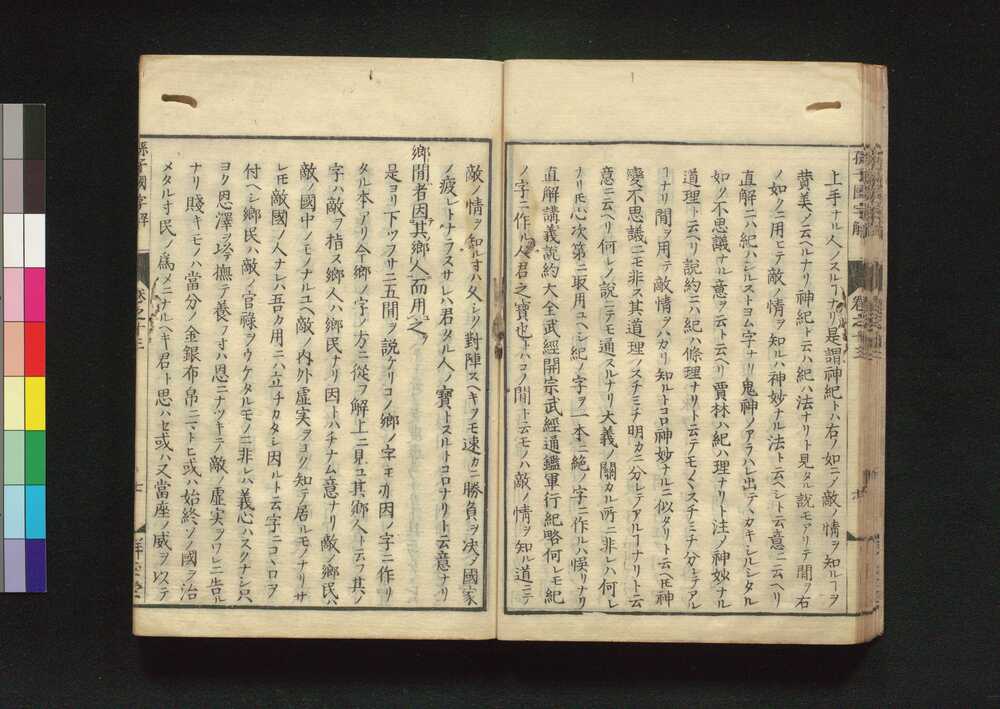 上手ナル人ノスルヿナリ是謂神紀トハ右ノ如ニノ敵ノ情ヲ知ルヿヲ
賛美ノ云ヘルナリ神紀ト云ハ紀ハ法ナリト見タル説モアリテ間ヲ右
ノ如クニ用ヒテ敵ノ情ヲ知ルハ神妙ナル法ト云ヘシト云意ニ云ヘリ
直解ニハ紀ハシルストヨム字ナリ鬼神ノアラハレ出テ丶カキシルシタル
如ク不思議ナル意ヲ云ト云ヘリ賈林ハ紀ハ理ナリト注ノ神妙ナル
道理ト云ヘリ説約ニハ紀ハ條理ナリト云テモノ丶スチミチ分レテアル
ヿナリ間ヲ用テ敵情ヲハカリ知ルトコロ神妙ナルニ似タリト云ヘ𪜈神
變不思議ニモ非ス其道理ノスチミチ明カニ分レテアルヿナリト云
意ニ云ヘリ何レノ説ニテモ通スルナリ大義ノ關カル所ニ非レハ何レ
ナリ𪜈心次第ニ取用ユヘシ紀ノ字ヲ一本ニ絶ノ字ニ作ルハ悞リナリ
直解講義説約大全武經開宗武經通鑑軍行紀略何レモ紀
ノ字ニ作ル人君之寶也トハコノ間ト云モノハ敵ノ情ヲ知ル道ニテ
敵ノ情ヲ知ルオハ久シク對陣スヘキヲモ速カニ勝負ヲ决ノ國家
ノ疲レトナラスサレハ君タル人ノ寶トスルトコロナリト云意ナリ
鄉間者因其鄉人而用之
是ヨリ下ツフサニ五間ヲ説ケリコノ鄉ノ字モ亦因ノ字ニ作リ
タル本アリ今鄉ノ字ノ方ニ從フ解上ニ見ユ其鄉人ト云フ其ノ
字ハ敵ヲ指ス鄉人ハ鄉民ナリ因トハチナム意ナリ敵ノ鄉民ハ
敵ノ國中ノモノナルユヘ敵ノ内外虚実ヲヨク知テ居ルモノナリサ
レ𪜈敵國ノ人ナレハ吾カ用ニハ立チカタシ因ルト云字ニコ丶ロヲ
付ヘシ鄉民ハ敵ノ官祿ヲウケタルモノニ非レハ義心ハスクナシ只
ヨク恩澤ヲ施撫テ養フオハ恩ニナツキテ敵ノ虚実ヲワレニ告ル
ナリ賤キモノハ當分ノ金銀布帛ニマトヒ或ハ始終ソノ國ヲ治
メタルオ民ノ爲メニナルヘキ君ト思ハセ或ハ又當座ノ威ヲ以テ
孫子國字解
卷之十三